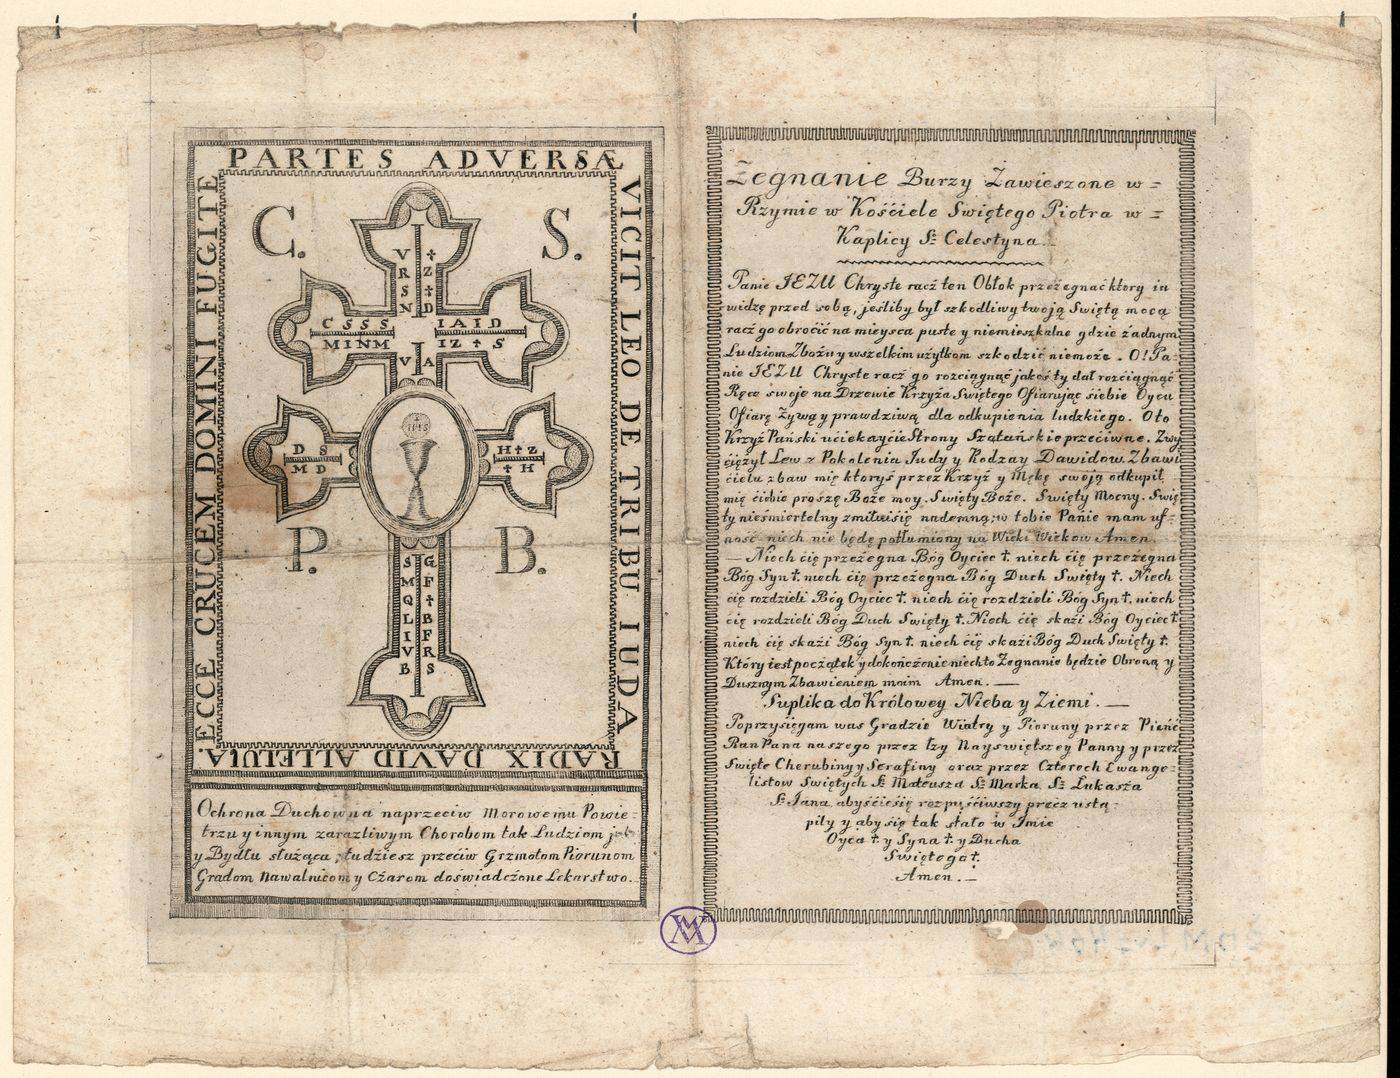 PARTES ADVERSÆ
VICIT LEO DE TRIBU IUDA
RADIX DAVID ALLELUIA.
ECCE CRUCEM DOMINI FUGITE
C. S.
V † R Z S † N D
C S S S I A I D
M I N M I Z † S
V A
IHS
D S H † Z
M D † H
P. B.
S G
M F
Q †
L B
I F
V R
B S
Ochrona Duchowna naprzeciw Morowemu Powie-
trzu y innym zarazliwym Chorobom tak Ludziom
y Bydłu służąca, tudziesz przećiw Grzmotom Piorunom
Gradom Nawalnicom y Czarom doświadczone Lekarstwo.
Zegnanie Burzy Zawieszone w=
Rzymie w Kościele Swiętego Piotra w=
Kaplicy S: Celestyna.
Panie JEZU Chryste racz ten Obłok przeżegnać ktory in
widzę przed sobą, jesliby był szkodliwy twoją Swiętą mocą
racz go obroćić na mieysca puste y niemieszkalne gdzie żadnym
Ludziom Zbożu y wszelkim użytkom szkodzić niemoże. O! Pa-
nie JEZU Chryste racz go rozciągnąć jakoś ty dał rozciągnąć
Ręce swoje na Drzewie Krzyża Swiętego Ofiarując siebie Oycu
Ofiarę Zywą y prawdziwą dla odkupienia ludzkiego. Oto
Krzyż Pański ućiekayćie Strony Szatańskie przećiwne. Zwy
ćiężył Lew z Pokolenia Judy y Rodzay Dawidow. Zbawi
ćielu zbaw mię ktoryś przez Krzyż y Mękę swoją odkupił
mię ćiebie proszę Boże moy. Swięty Boże. Swięty Mocny. Swię
ty nieśmiertelny zmiłuisię nademną; w tobie Panie mam uf-
ność niech nie będę potłumiony na Wieki Wiekow Amen.
— Niech ćię przeżegna Bóg Oyciec †. niech ćię przeżegna
Bóg Syn †. niech ćię przeżegna Bóg Duch Swięty †. Niech
ćię rozdzieli Bóg Oyciec †. niech ćię rozdzieli Bóg Syn †. niech
ćię rozdzieli Bóg Duch Swięty †. Niech ćię skaźi Bóg Oyciec †
niech ćię skaźi Bóg Syn †. niech ćię skaźi Bóg Duch Swięty †.
Który iest początek y dokończenie niech to Zegnanie będzie Obroną y
Dusznym Zbawieniem moim Amen. —
Suplika do Królowey Nieba y Ziemi. —
Poprzysięgam was Gradzie Wiatry y Pioruny przez Pieńć
Ran Pana naszego przez łzy Nayswiętszey Panny y przez
Swięte Cherubiny y Serafiny oraz przez Czterech Ewange-
listow Swiętych S: Mateusza S: Marka S: Łukasza
S: Jana abyśćiesię rozpuśćiwszy precz ustą-
piły y aby się tak stało w Imie
Oyca †. y Syna †. y Ducha
Swiętego †.
Amen. —